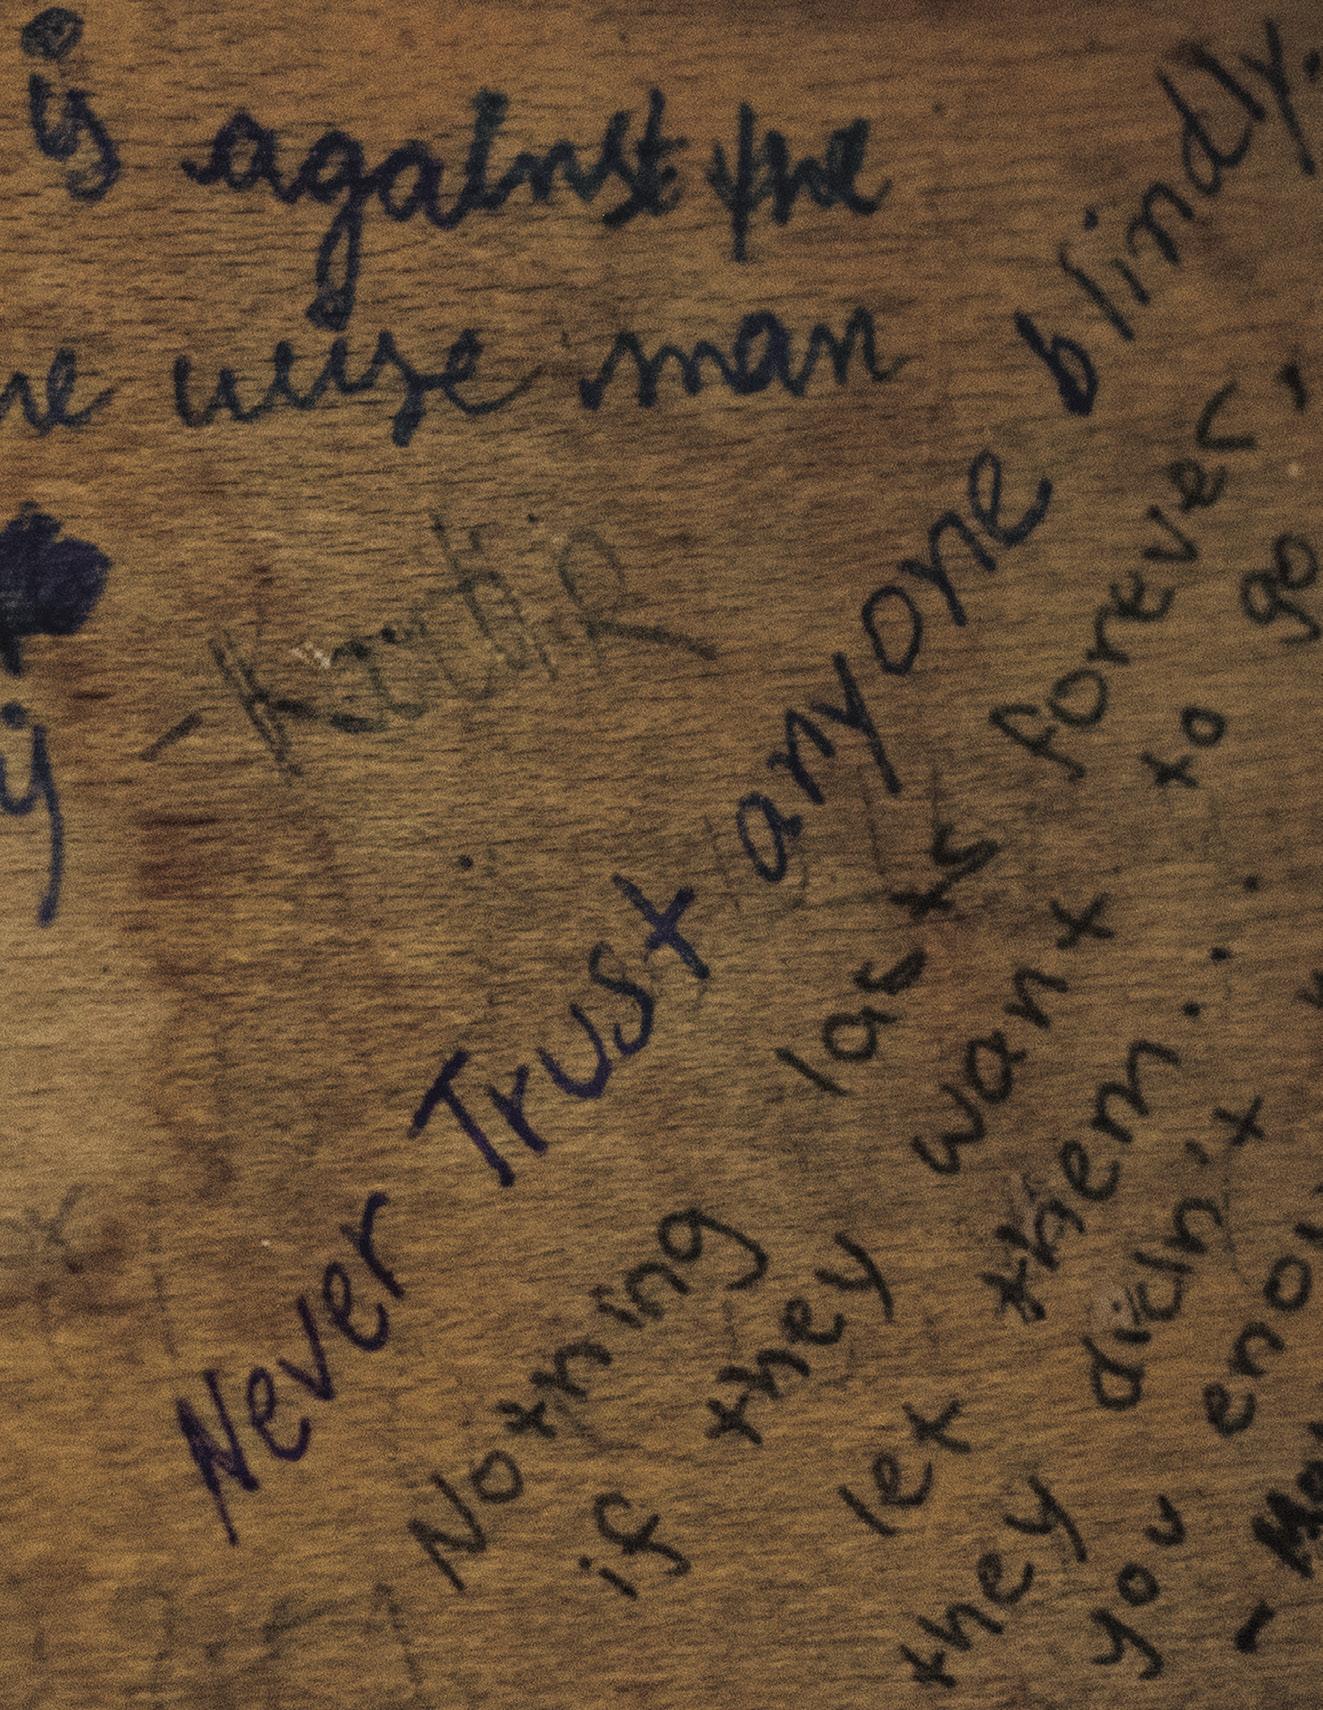 is against the
wise man
Never Trust anyone blindly.
Nothing lasts forever,
if they want to go
let them...
they didn't
you